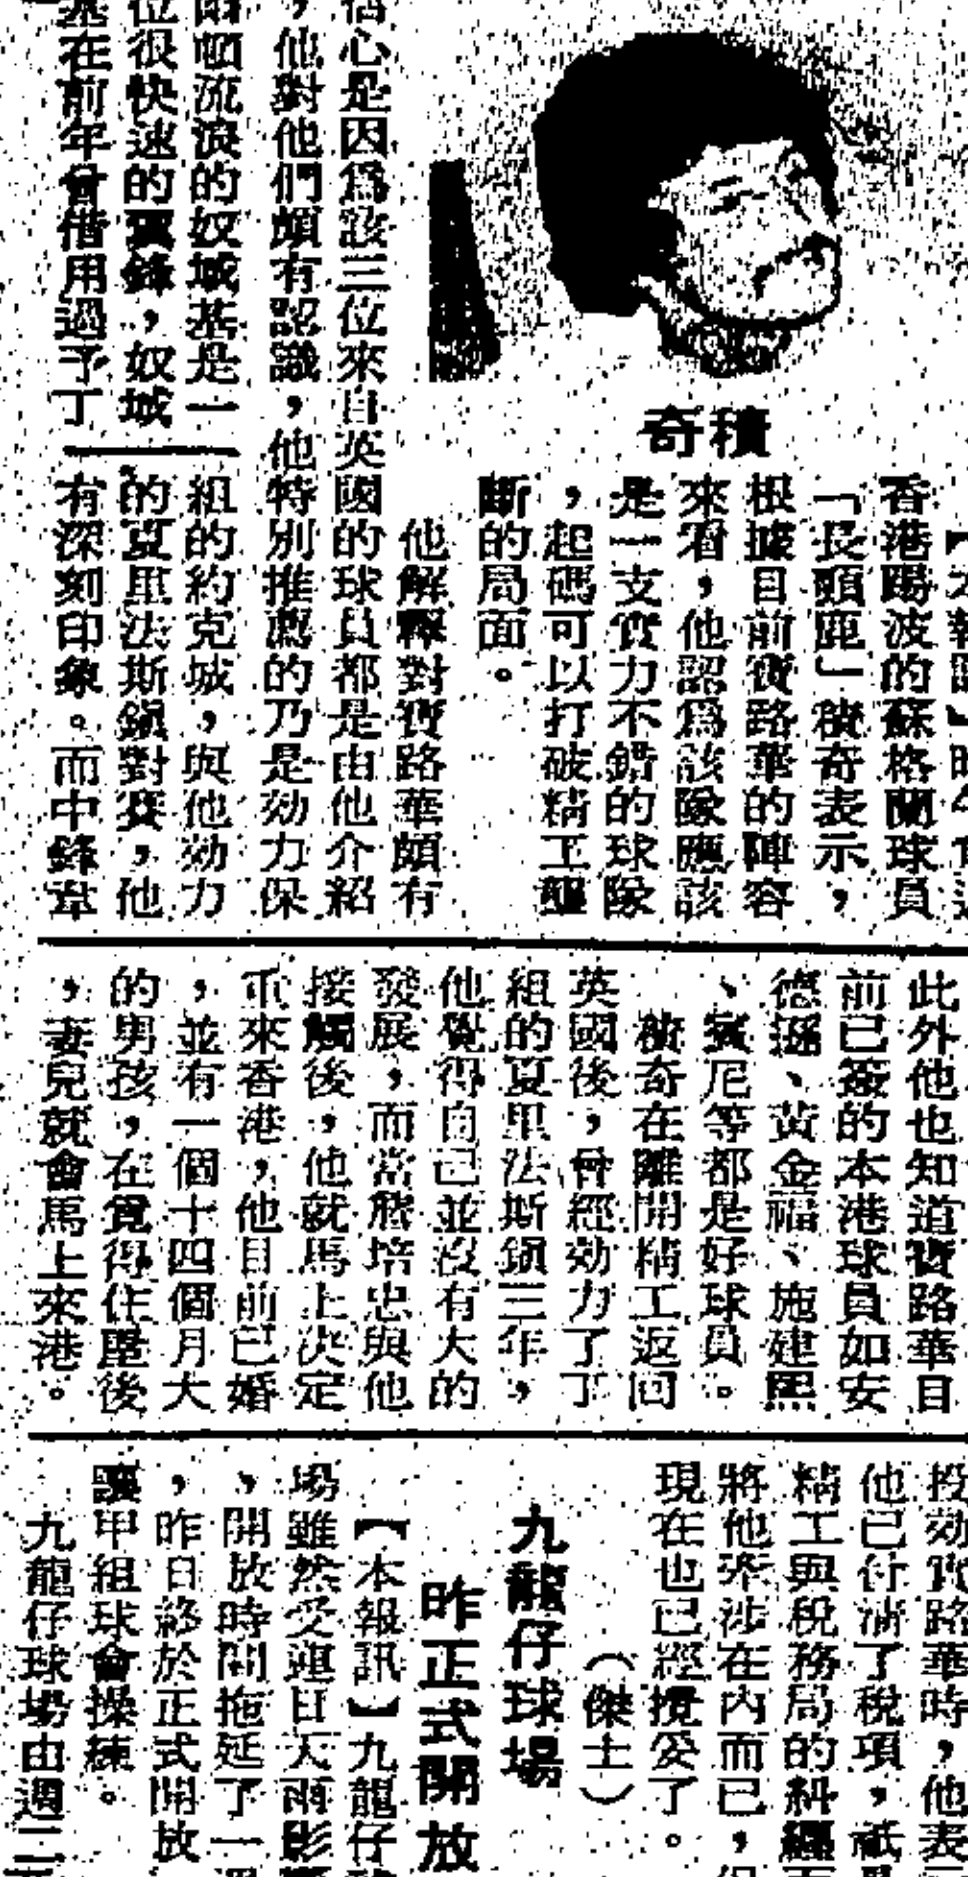 積奇
香港踢波的蘇格蘭球員
「長頸鹿」積奇表示，
根據目前寶路華的陣容
來看，他認爲該隊應該
是一支實力不錯的球隊
，起碼可以打破精工壟
斷的局面。
他解釋對寶路華頗有
信心是因爲該三位來自英國的球員都是由他介紹
，他對他們頗有認識，他特別推薦的乃是効力保
頓流浪的奴城基是一
位很快速的翼鋒，奴城
基在前年曾借用過予丁
組的約克城，與他効力
的夏里法斯鎭對賽，他
有深刻印象。而中鋒韋
此外他也知道寶路華目
前已簽的本港球員如安
德遜、黃金福、施建熙
、賓尼等都是好球員。
積奇在離開精工返回
英國後，曾經効力了丁
組的夏里法斯鎭三年，
他覺得自己並沒有大的
發展，而當詹培忠與他
接觸後，他就馬上決定
重來香港，他目前已婚
，並有一個十四個月大
的男孩，在覓得住屋後
，妻兒就會馬上來港。
投効寶路華時，他表
他已付淸了稅項，祇是
精工與稅務局的糾纏而
將他牽涉在內而已，但
現在也已經攪妥了。
（傑士）
九龍仔球場
昨正式開放
【本報訊】九龍仔球
場雖然受連日天雨影響
，開放時間拖延了一
，昨日終於正式開放
讓甲組球會操練。
九龍仔球場由週二